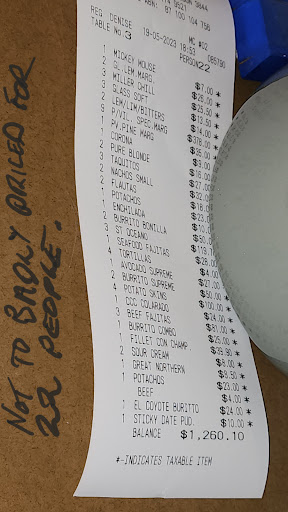 ABN: 87 100 104 756
REG DENISE 19-05-2023 18:53 MC #02 DB5790
TABLE NO. 3 PERSON 22
1 MICKEY MOUSE $7.00 *
2 GL LEM MARG $26.00 *
3 MILLER CHILL $25.00 *
3 GLASS SOFT $13.50 *
2 LEM/LIM/BITTERS $14.00 *
9 P/VIL. SPEC MARG $378.00 *
1 PV.PINE MARG $35.00
1 CORONA $9.00
2 PURE BLONDE $16.00
3 TAQUITOS
2 NACHOS SMALL
1 FLAUTAS
1 POTACHOS
1 ENCHILADA
2 BURRITO BONILLA
3 ST OCEANO
1 SEAFOOD FAJITAS
4 TORTILLAS
1 AVOCADO SUPREME $4.00
2 BURRITO SUPREME $27.00
4 POTATO SKINS $50.00 *
1 CCC COLARADO $100.00 *
3 BEEF FAJITAS $24.00 *
1 BURRITO COMBO $81.00 *
1 FILLET CON CHAMP $25.00 *
2 SOUR CREAM $39.90 *
1 GREAT NORTHERN $8.00 *
1 POTACHOS $8.50 *
BEEF $23.00 *
$4.00 *
1 EL COYOTE BURITTO $24.00 *
1 STICKY DATE PUD. $10.00 *
BALANCE $1,260.10
*-INDICATES TAXABLE ITEM
NOT TO BADLY PRICED FOR
22 PEOPLE.